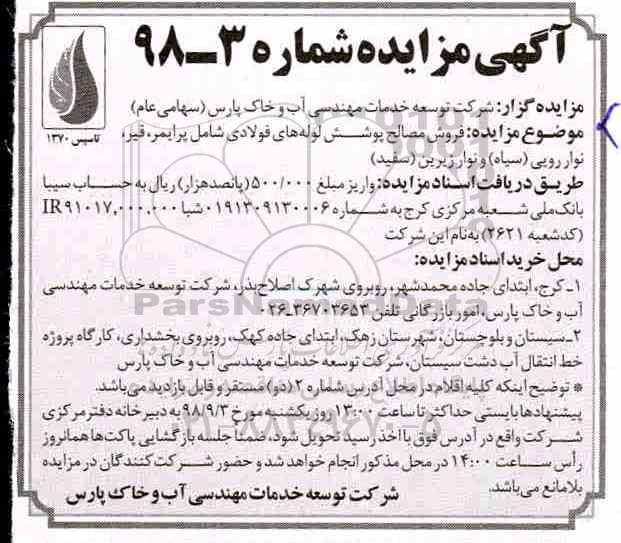 آگهی مزایده شماره ۳ــ۹۸
تاسیس ۱۳۷۰
مزایده گزار: شرکت توسعه خدمات مهندسی آب و خاک پارس (سهامی عام)
موضوع مزایده: فروش مصالح پوشش لوله‌های فولادی شامل پرایمر، قیر،
نوار رویی (سیاه) و نوار زیرین (سفید)
طریق دریافت اسناد مزایده: واریز مبلغ ۵۰۰/۰۰۰ (پانصدهزار) ریال به حساب سیبا
بانک ملی شعبه مرکزی کرج به شماره ۰۱۹۱۳۰۹۱۳۰۰۰۶ شبا IR ۹۱۰۱۷,۰۰۰,۰۰۰
(کدشعبه ۲۶۲۱) به‌نام این شرکت
محل خرید اسناد مزایده:
۱ـ کرج، ابتدای جاده محمدشهر، روبروی شهرک اصلاح بذر، شرکت توسعه خدمات مهندسی
آب و خاک پارس، امور بازرگانی تلفن ۳۶۷۰۳۶۵۳-۰۲۶
۲ـ سیستان و بلوچستان، شهرستان زهک، ابتدای جاده کهک، روبروی بخشداری، کارگاه پروژه
خط انتقال آب دشت سیستان، شرکت توسعه خدمات مهندسی آب و خاک پارس
* توضیح اینکه کلیه اقلام در محل آدرس شماره ۲ (دو) مستقر و قابل بازدید می‌باشد.
پیشنهادها بایستی حداکثر تا ساعت ۱۳:۰۰ روز یکشنبه مورخ ۹۸/۹/۳ به دبیرخانه دفتر مرکزی
شرکت واقع در آدرس فوق با اخذ رسید تحویل شود، ضمناً جلسه بازگشایی پاکت‌ها همانروز
رأس ساعت ۱۴:۰۰ در محل مذکور انجام خواهد شد و حضور شرکت‌کنندگان در مزایده
بلامانع می‌باشد.
شرکت توسعه خدمات مهندسی آب و خاک پارس
ParsNamadData